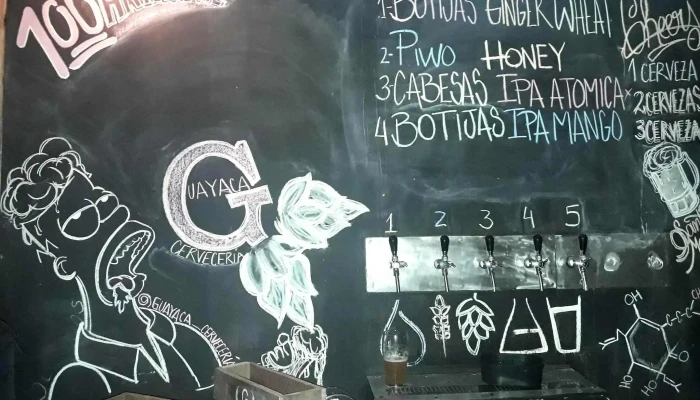 100%
1-BOTIJAS GINGER WHEAT
2-PIWO HONEY
3-CABESAS IPA ATOMICA
4.BOTIJAS IPA MANGO
Cheers
1 CERVEZA
2.CERVEZAS
3CERVEZA
GUAYACA
CERVECERIA
1 2 3 4 5
©GUAYACA CERVECERÍA
OH
HO
HO OH
O